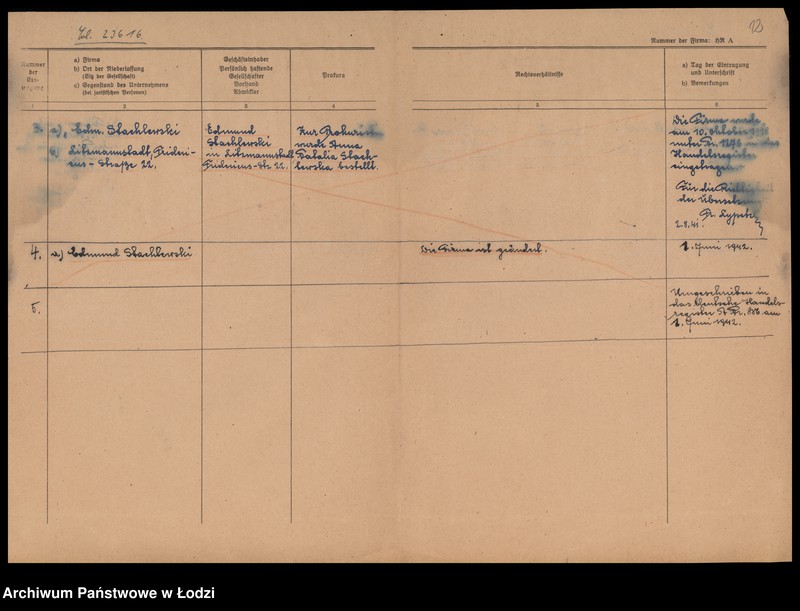 13
Nummer der Firma: HR A
Nummer
der
Ein-
tragung
a) Firma
b) Ort der Niederlassung
(Sitz der Gesellschaft)
c) Gegenstand des Unternehmens
(bei juristischen Personen)
Geschäftsinhaber
Persönlich haftende
Gesellschafter
Vorstand
Abwickler
Prokura
Rechtsverhältnisse
a) Tag der Eintragung
und Unterschrift
b) Bemerkungen
1
2
3
4
5
6
3.
a) Edm. Stachlewski
Litzmannstadt, Frideri-
cus-Straße 22.
Edmund
Stachlewski
in Litzmannstadt
Fridericus-Str. 22.
Zur Prokuristin
wurde Anna
Natalia Stach-
lewska bestellt.
Die Firma wurde
am 10. Oktober
unter Nr. 1176 in das
Handelsregister
eingetragen
Für die Richtigkeit
der Übersetzung
2.8.41.
4.
a) Edmund Stachlewski
Die Firma ist geändert.
1. Juni 1942.
5.
Umgeschrieben in
das deutsche Handels-
register A Nr. am
1. Juni 1942.
Archiwum Państwowe w Łodzi